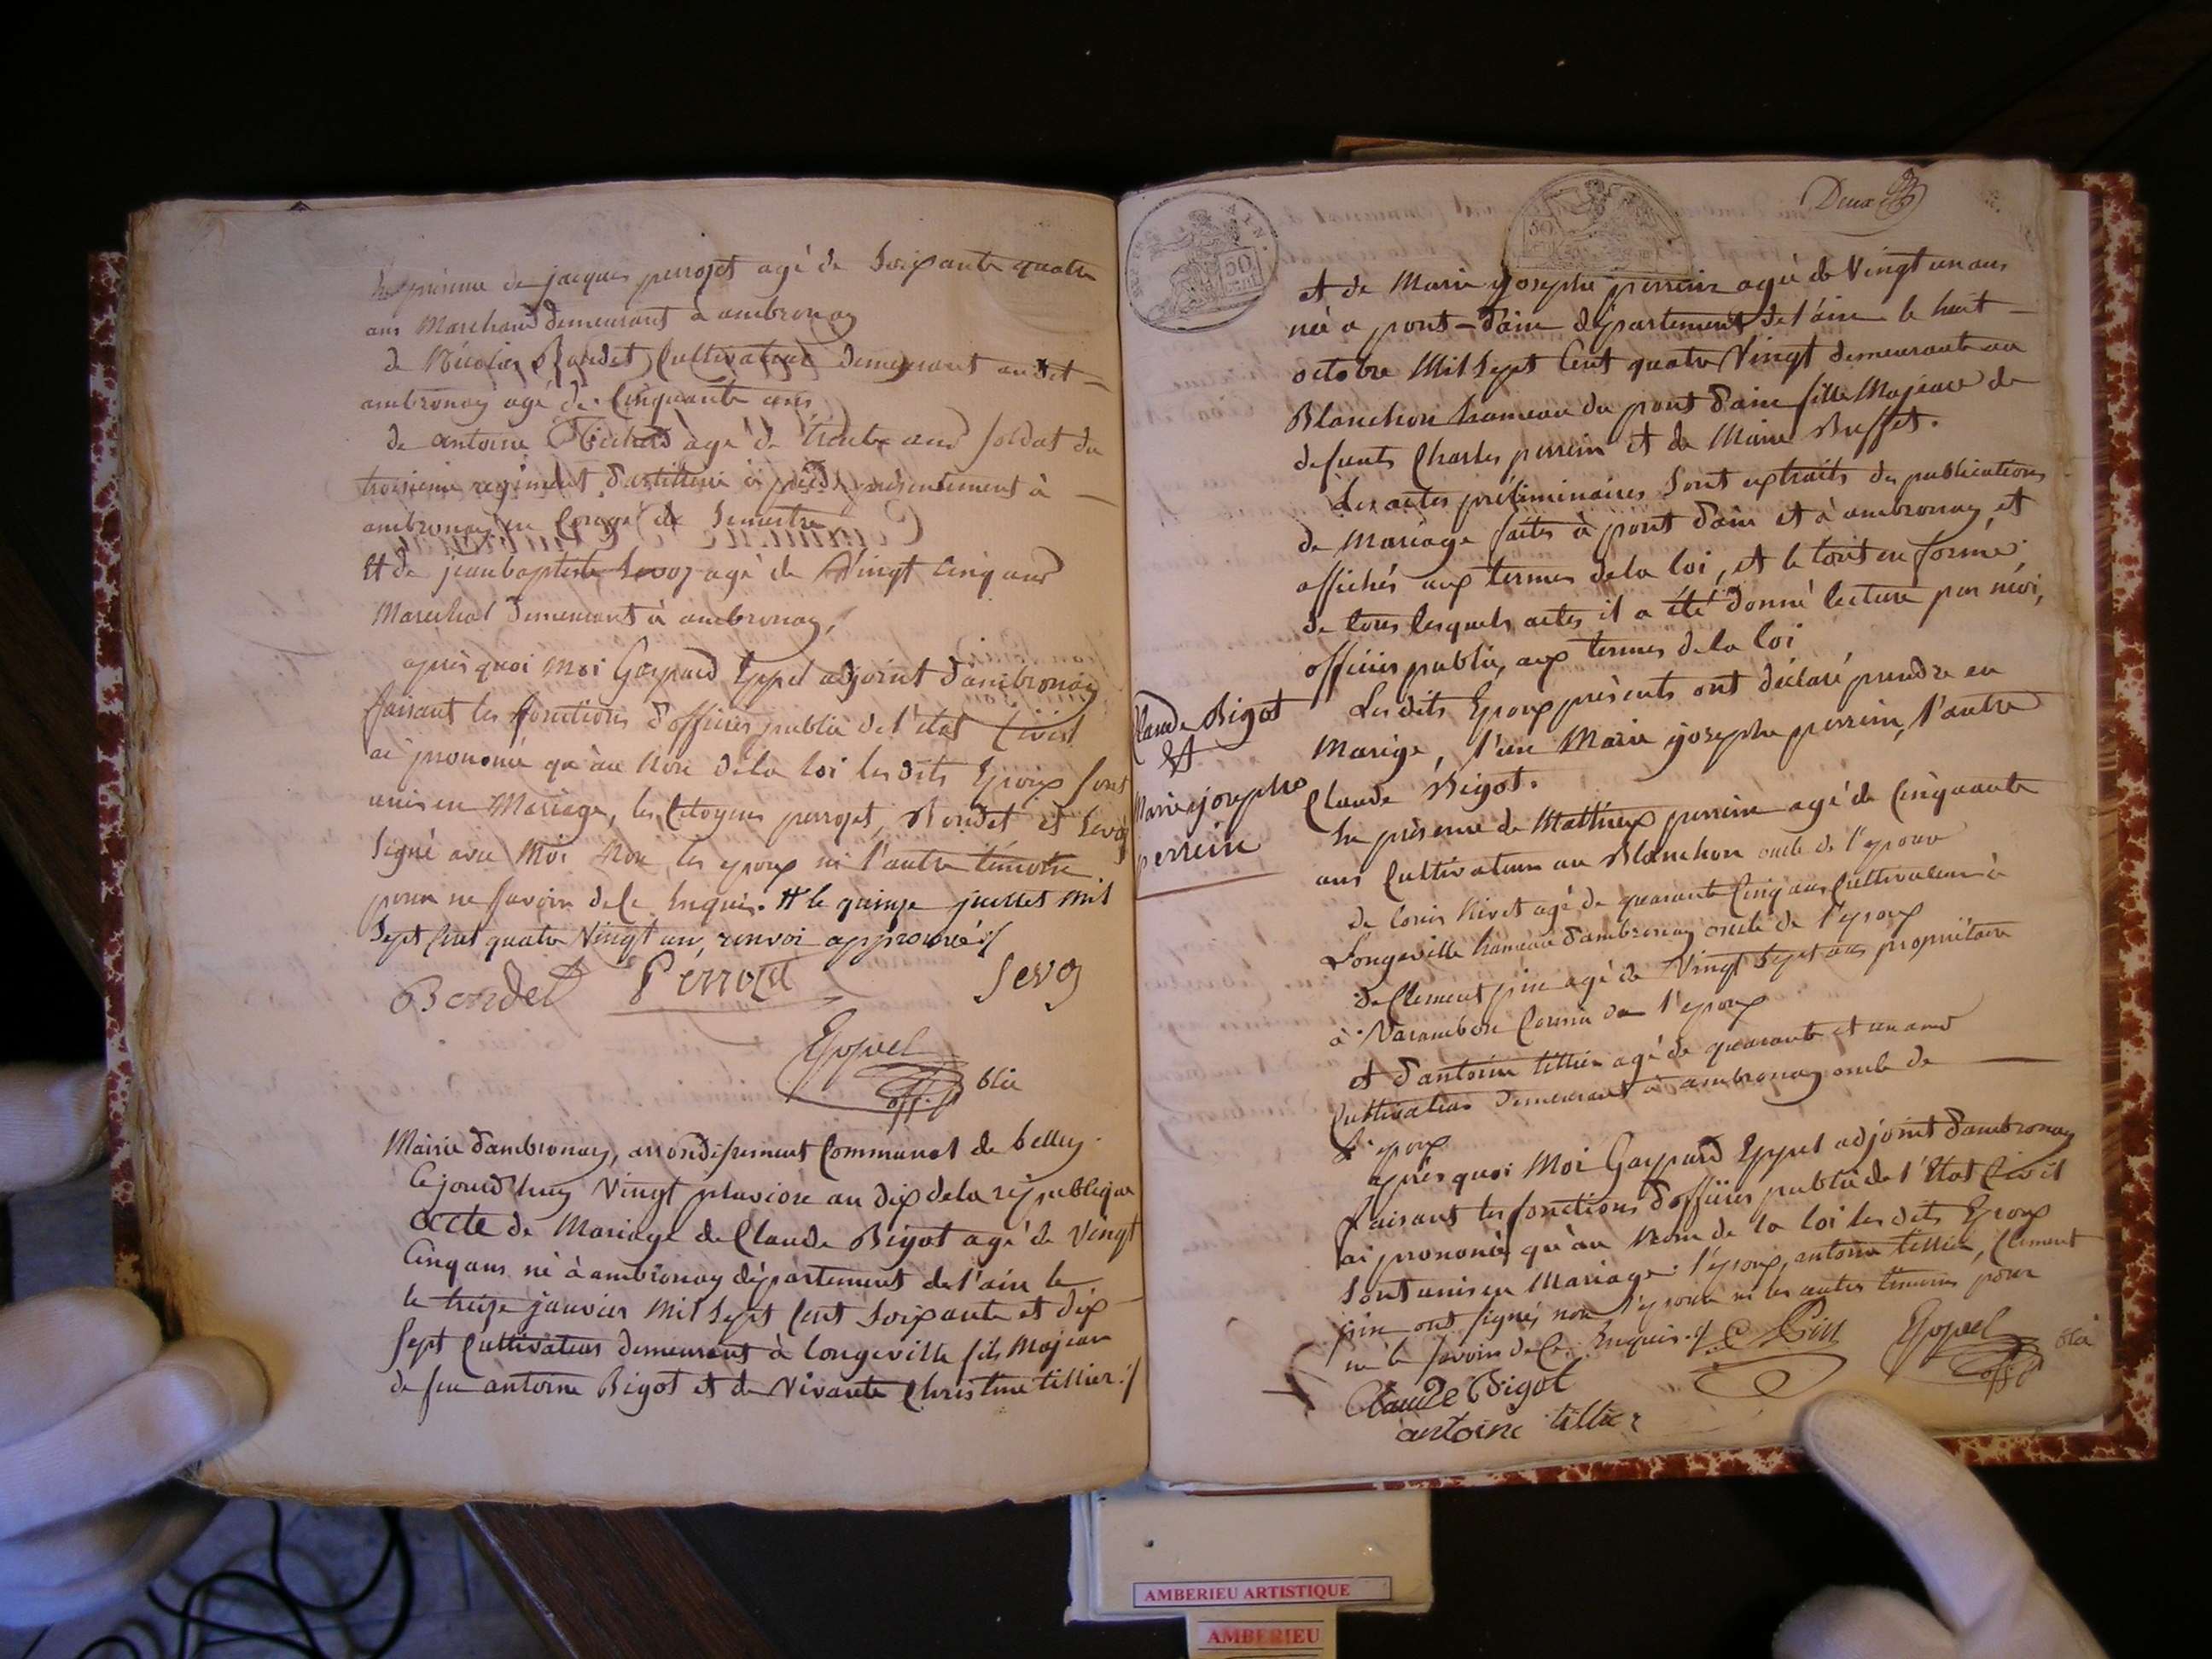 En présence de jacques perrozet agé de Soixante quatre
ans Marchand demeurant à ambronay
de Nicolas Bondet Cultivateur demeurant audit
ambronay agé de Cinquante ans
de antoine agé de trente ans soldat du
troisieme regiment d'artillerie à pied présentement à
ambronay en Congé de Semestre
Et de jean baptiste Sevoz agé de Vingt Cinq ans
Marechal demeurant à ambronay,
après quoi Moi Gaspard Eppel adjoint d'ambronay
faisant les fonctions d'officier public de l'état Civil
ai prononcé qu'au Nom de la loi les dits Epoux sont
unis en Mariage, les Citoyens perrozet, Bondet et Sevoz
Signé avec Moi Non les epoux ni l'autre témoin
pour ne savoir de ce Enquis. # le quinze juillet Mil
Sept Cent quatre Vingt un, renvoi approuvé ./
Bondet Perrozet Sevoz
Eppel
off. p blic
Mairie d'ambronay, arrondissement Communal de belley
Cejourd'huy Vingt pluviose an dix de la république
acte de Mariage de Claude Bigot agé de Vingt
Cinq ans né à ambronay département de l'ain le
le treize janvier Mil Sept Cent Soixante et dix
Sept Cultivateur demeurant à longeville fils Majeur
de feu antoine Bigot et de Vivante Christine tillier ./
50
50
Deux
et de Marie yosephe perrein agée de Vingt un ans
née a pont-d'ain département de l'ain le huit
octobre Mil Sept Cent quatre Vingt demeurante au
Blanchon hameau du pont d'ain fille Majeure de
defunts Charles perrein et de Marie Buffet.
Les actes préliminaires Sont extraits des publications
de Mariage faites à pont d'ain et à ambronay, et
affichés aux termes de la loi, et le tout en forme
de tous lesquels actes il a été donné lecture par moi,
officier public, aux termes de la loi
Les dits Epoux présents ont déclaré prendre en
Marige, l'un Marie yosephe perrein, l'autre
Claude Bigot.
Claude Bigot
&
Marie josephe
perrein
En présence de Matthieux perrein agé de Cinquante
ans Cultivateur au Blanchon oncle de l'epouse
de louis Nivet agé de quarante Cinq ans Cultivateur à
Longeville hameau d'ambronay oncle de l'epoux
de Clement pin agé de Vingt Sept ans propriétaire
à Varambon Cousin de l'epoux
et d'antoine tillier agé de quarante et un ans
Cultivateur demeurant à ambronay oncle de
L'epoux
après quoi Moi Gaspard Eppel adjoint d'ambronay
faisant les fonctions d'officier public de l'Etat Civil
ai prononcé qu'au Nom de la loi les dits Epoux
Sont unis en Mariage. l'époux, antoine tillier, Clement
pin ont signés non l'epouse ni les autres témoins pour
ne le savoir de Ce Enquis ./. C Pin Eppel
off. p blic
Claude Bigot
antoine tillier
AMBERIEU ARTISTIQUE
AMBERIEU